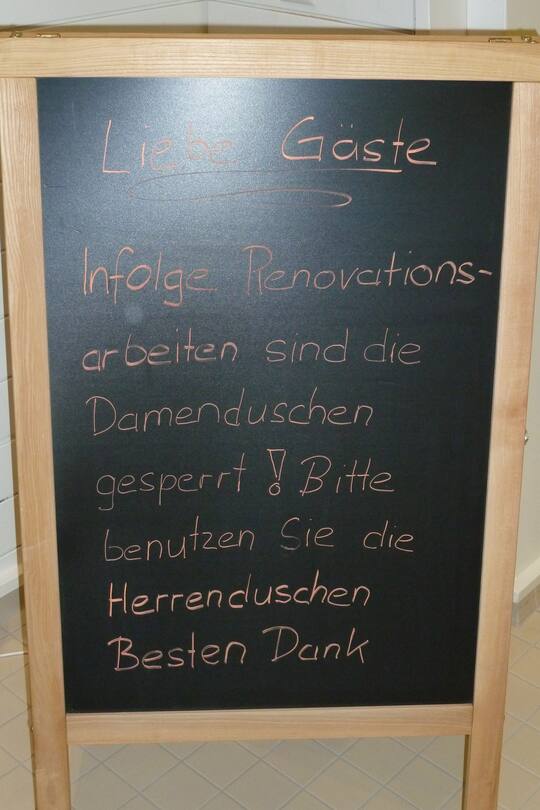 Liebe Gäste
Infolge Renovations-
arbeiten sind die
Damenduschen
gesperrt! Bitte
benutzen Sie die
Herrenduschen
Besten Dank